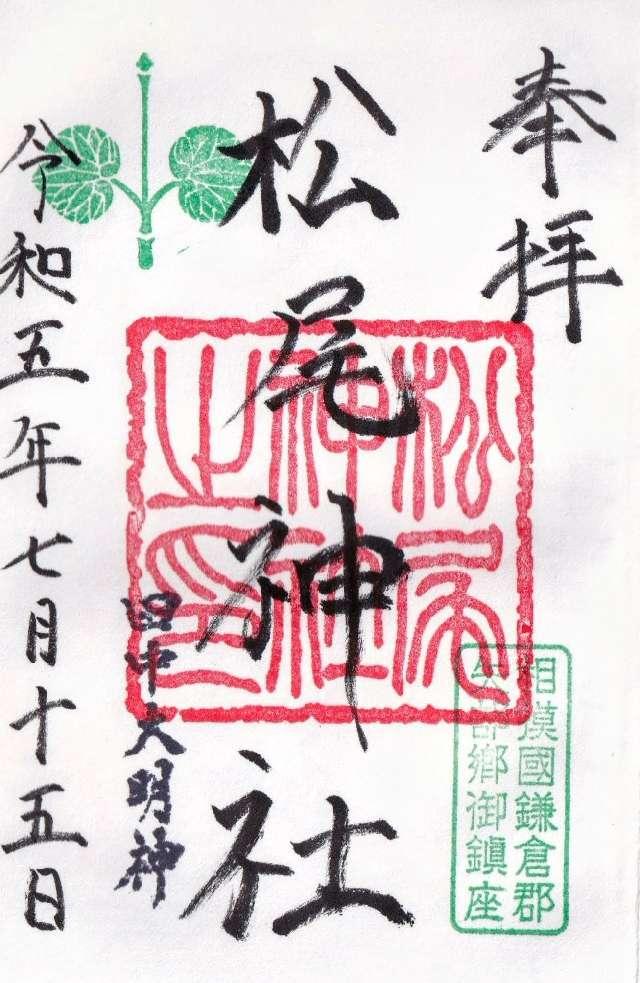 奉拝
相模國鎌倉郡
矢部郷御鎮座
松尾神社
松尾
神社
之印
田中大明神
令和五年七月十五日